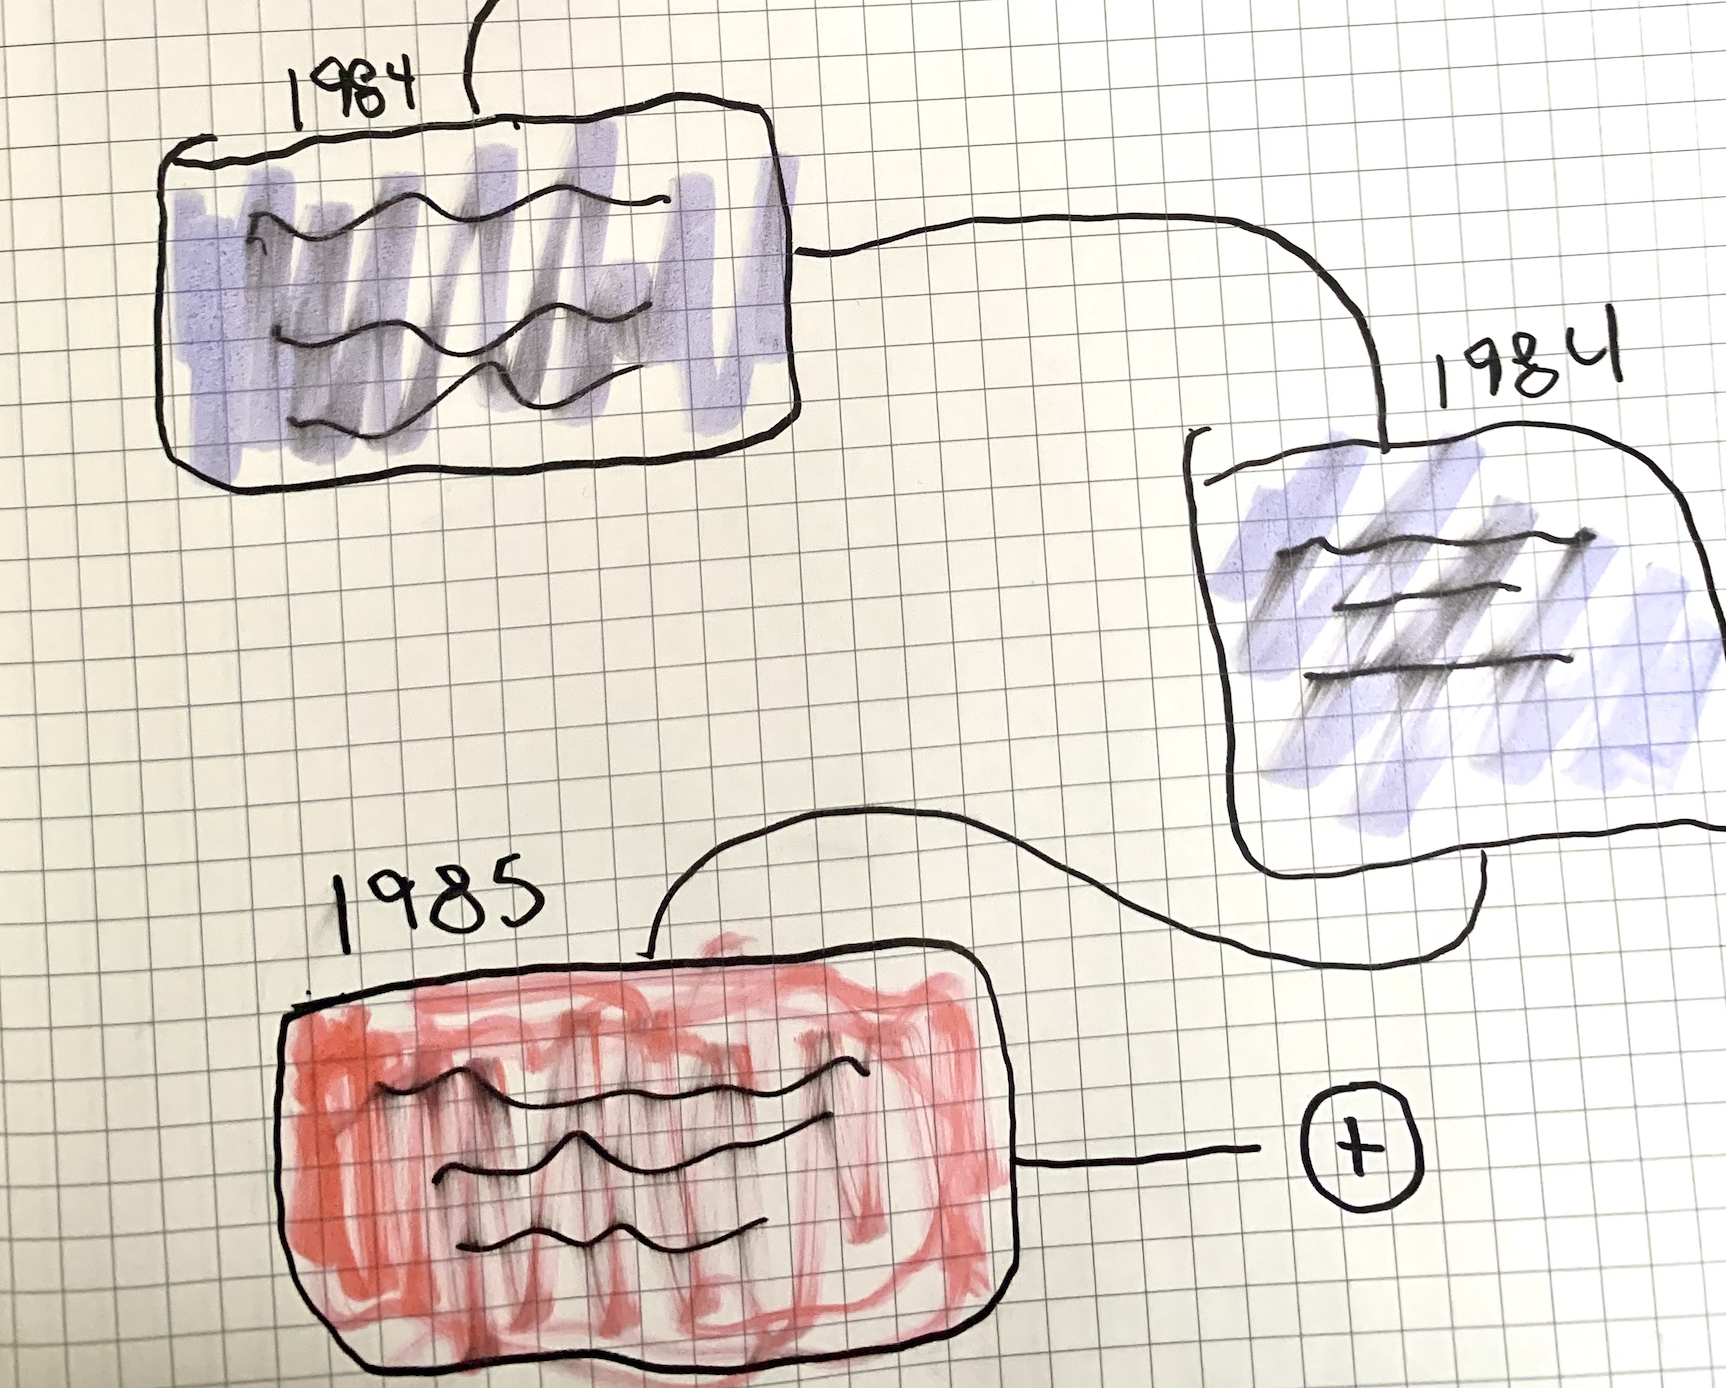 1984
1984
1985
+